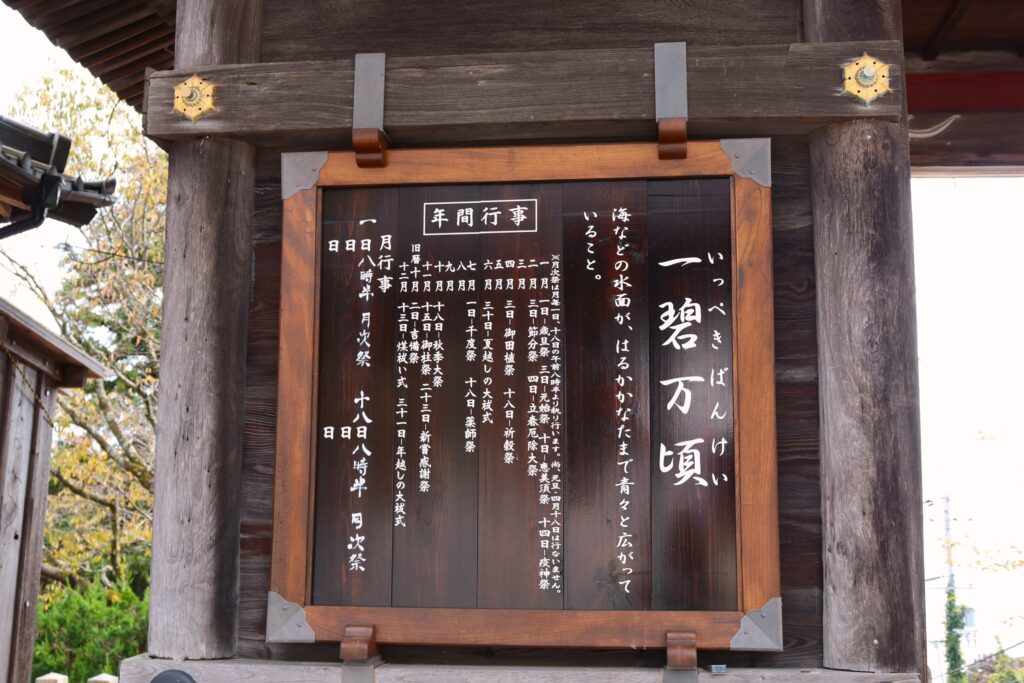 いっぺきばんけい
一碧万頃
海などの水面が、はるかかなたまで青々と広がって
いること。
年間行事
※月次祭は月毎一日、十八日の午前八時半より執り行います。尚、元旦・四月十八日は行ないません。
一月 一日–歳旦祭 三日–元始祭 十日–恵美須祭 十四日–疫神祭
二月 三日–節分祭 四日–立春厄除大祭
三月
四月 三日–御田植祭 十八日–祈穀祭
五月
六月 三十日–夏越しの大祓式
七月 一日–千度祭 十八日–薬師祭
八月
九月
十月 十八日–秋季大祭
十一月 十五日–御柱祭 二十三日–新嘗感謝祭
旧暦十月 二日–吉備祭
十二月 十三日–煤祓い式 三十一日–年越しの大祓式
月行事
一日八時半 月次祭 十八日八時半 月次祭
日 日 日 日